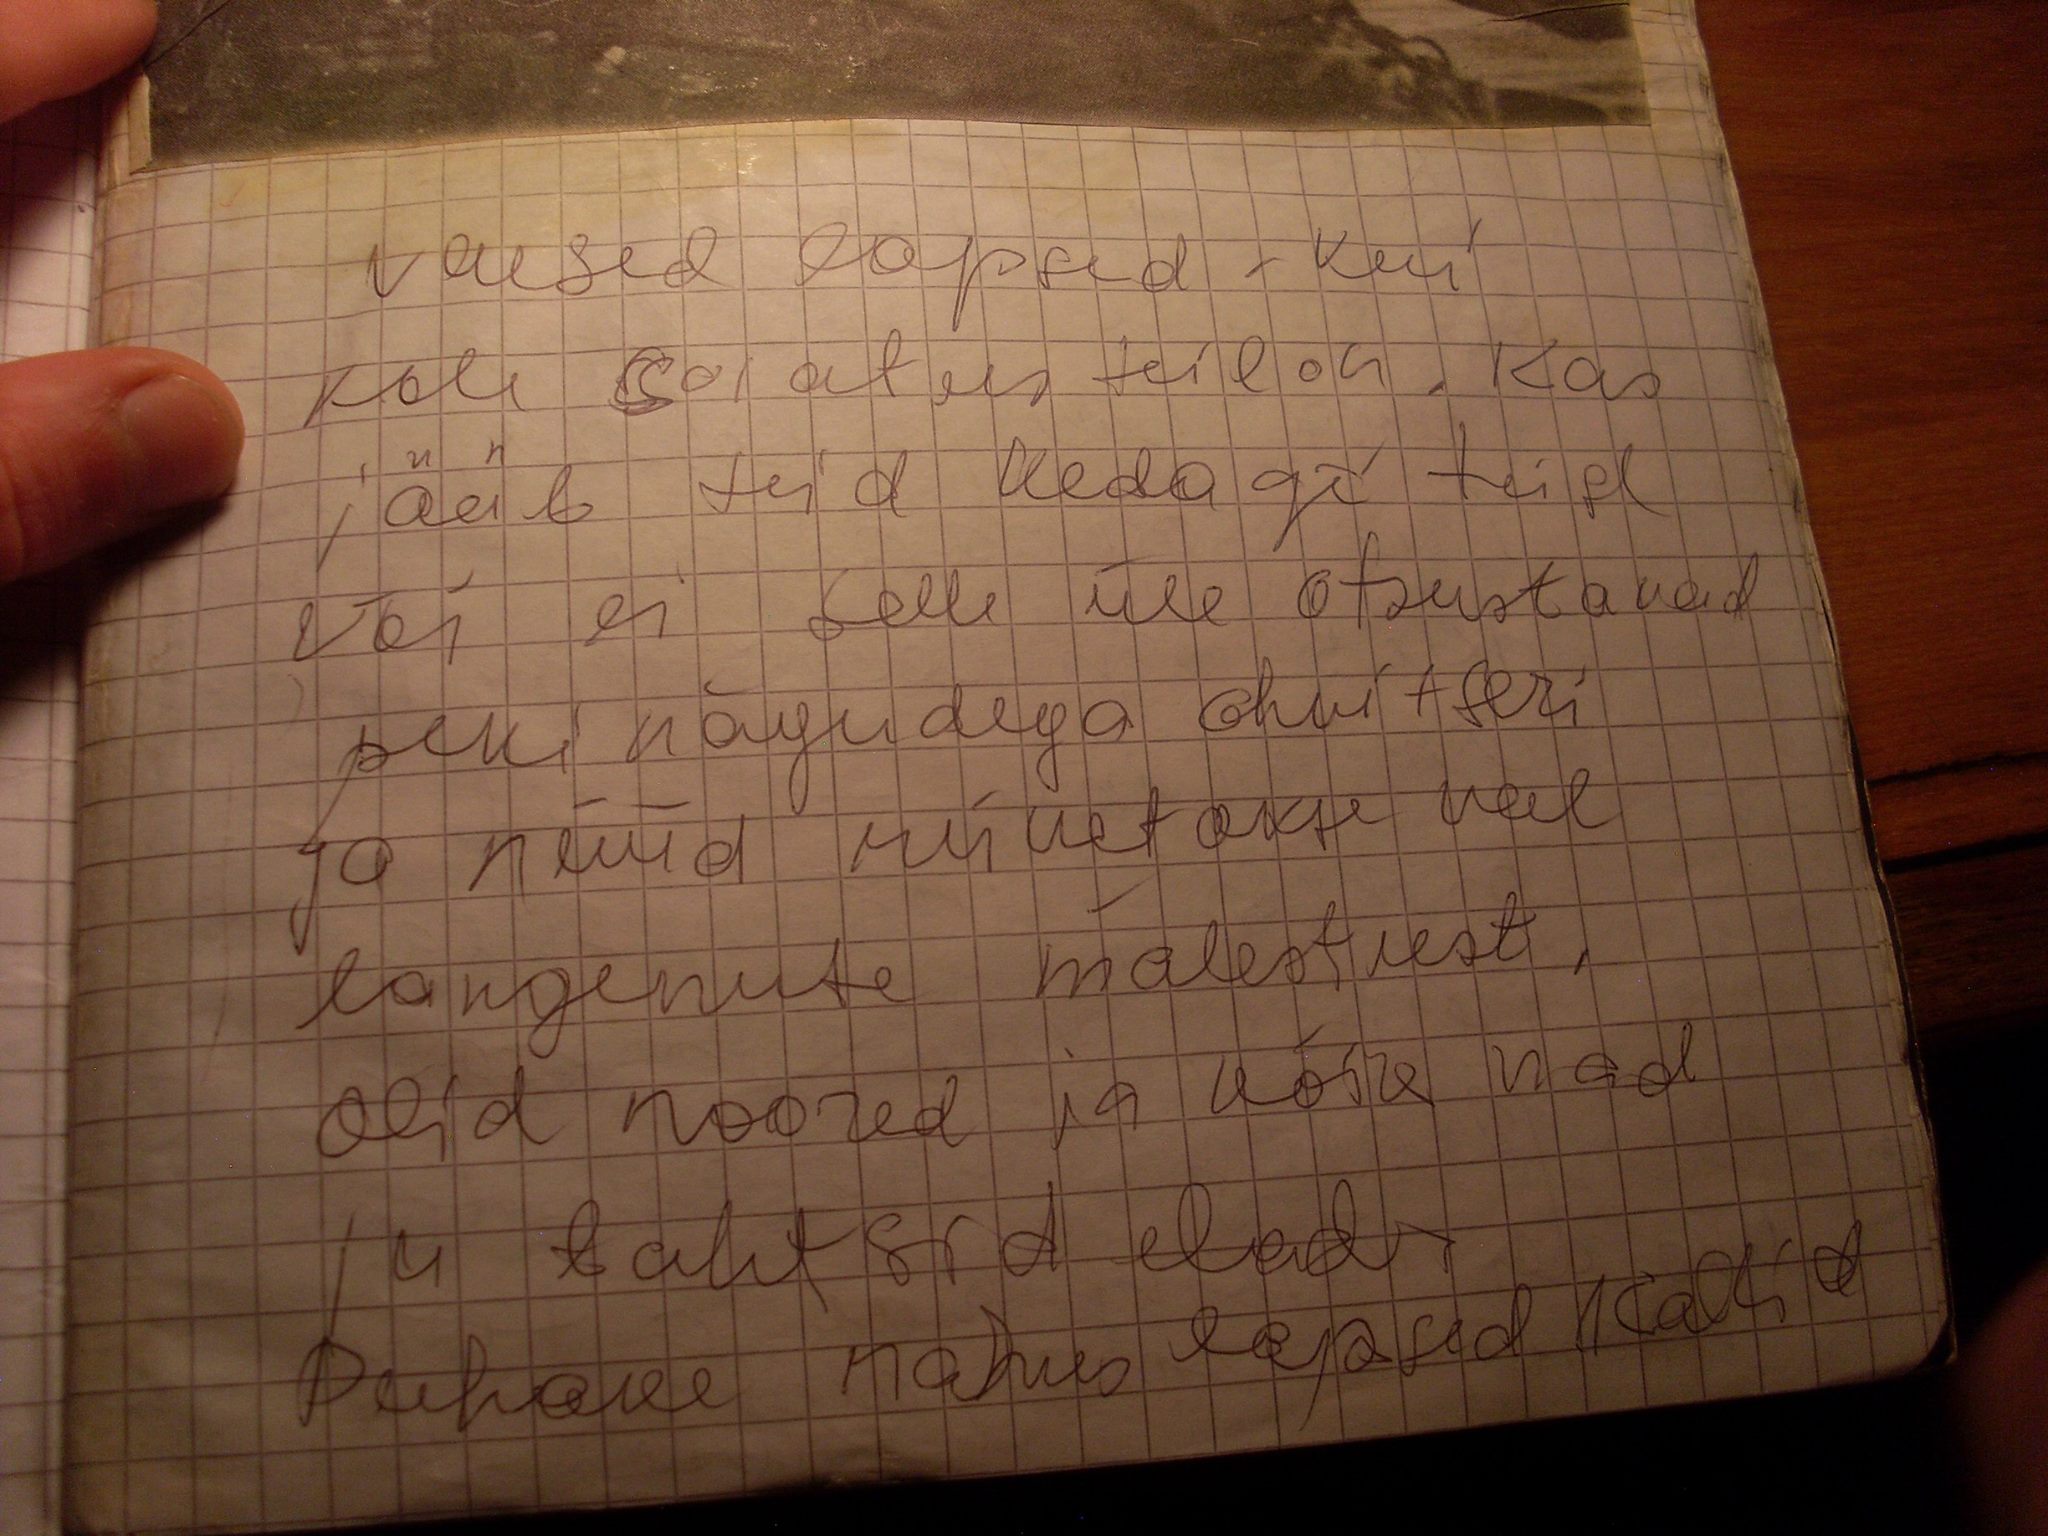 vaesed lapsed - kui
kole saatus teil on. Kas
jääb teid kedagi teist
või ei selle üle otsustavad
peninägudega ohvitseri
ja nüüd riivetakse veel
langenute mälestust.
olid noored ja kõik nad
ju tahtsid elada
Puhake rahus lapsed kallid